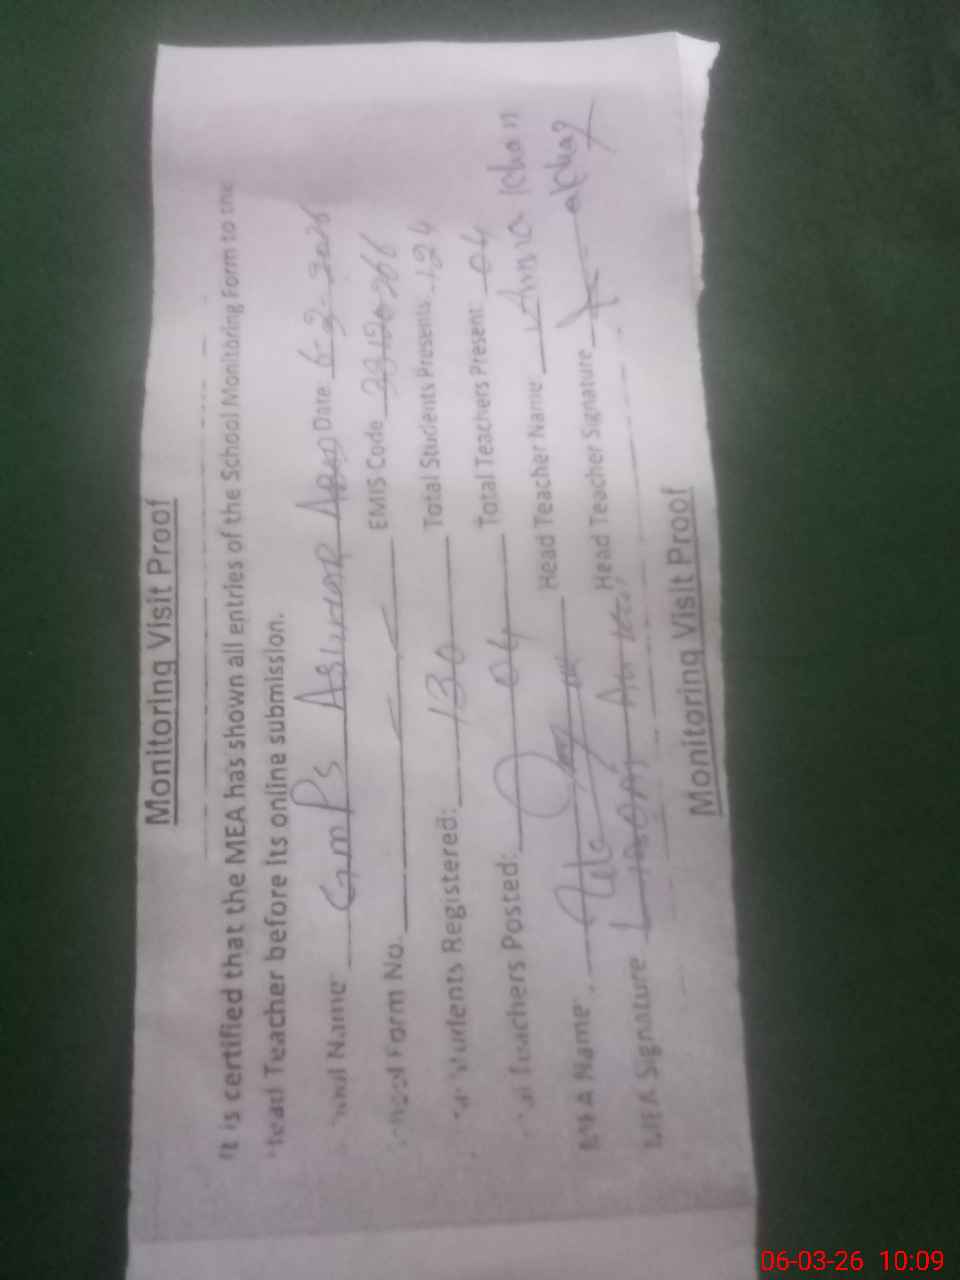 Monitoring Visit Proof
It is certified that the MEA has shown all entries of the School Monitoring Form to the
Head Teacher before its online submission.
Name GMPS Date: 6-3-2026
School Form No. EMIS Code
Students Registered: 130 Total Students Presents: 124
Teachers Posted: 04 Total Teachers Present: 04
MEA Name: Head Teacher Name: Amna Khan
MEA Signature Head Teacher Signature
Monitoring Visit Proof
06-03-26 10:09